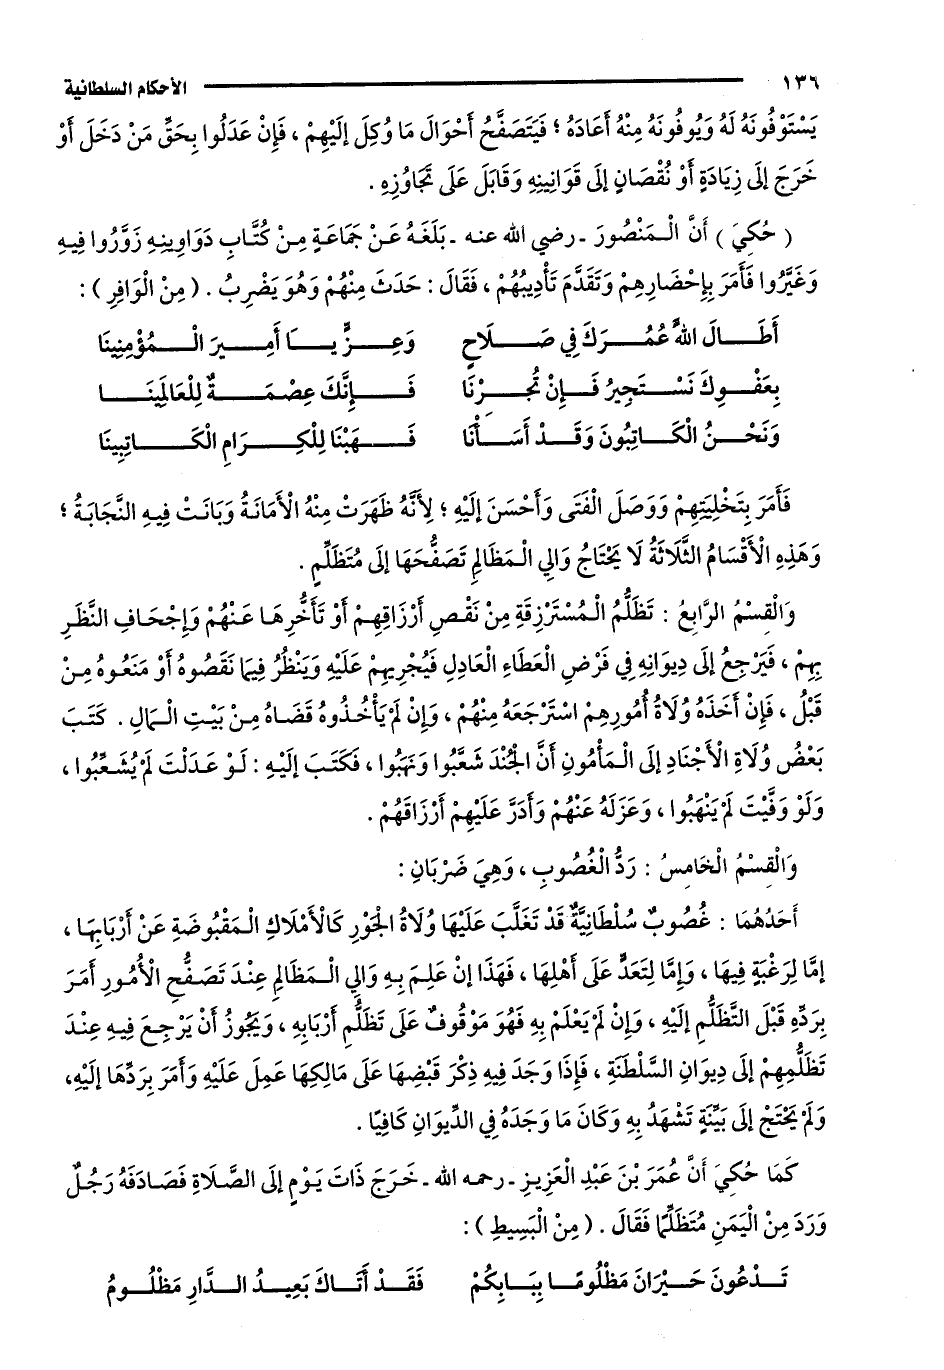 ١٣٦ الأحكام السلطانية
يَسْتَوْفُونَهُ لَهُ وَيُوفُونَهُ مِنْهُ أَعَادَهُ ؛ فَيَتَصَفَّحُ أَحْوَالَ مَا وُكِلَ إِلَيْهِمْ ، فَإِنْ عَدَلُوا بِحَقٍّ مَنْ دَخَلَ أَوْ
خَرَجَ إِلَى زِيَادَةٍ أَوْ نُقْصَانٍ إِلَى قَوَانِينِهِ وَقَابَلَ عَلَى تَجَاوُزِهِ .
( حُكِيَ ) أَنَّ الْمَنْصُورَ ـ رضي الله عنه ـ بَلَغَهُ عَنْ جَمَاعَةٍ مِنْ كُتَّابِ دَوَاوِينِهِ زَوَّرُوا فِيهِ
وَغَيَّرُوا فَأَمَرَ بِإِحْضَارِهِمْ وَتَقَدَّمَ تَأْدِيبُهُمْ ، فَقَالَ : حَدَثَ مِنْهُمْ وَهُوَ يَضْرِبُ . ( مِنْ الْوَافِرِ ) :
أَطَـــالَ اللهُ عُمُـــرَكَ فِي صَـــلَاحٍ وَعِـــزٍّ يَـــا أَمِـــيرَ الْـــمُؤْمِنِينَا
بِعَفْـــوِكَ نَسْـــتَجِيرُ فَـــإِنْ تُجِـــرْنَا فَـــإِنَّكَ عِصْمَـــةٌ لِلْعَالَمِينَـــا
وَنَحْـــنُ الْكَـــاتِبُونَ وَقَـــدْ أَسَـــأْنَا فَـــهَبْنَا لِلْكِـــرَامِ الْكَـــاتِبِينَا
فَأَمَرَ بِتَخْلِيَتِهِمْ وَوَصَلَ الْفَتَى وَأَحْسَنَ إِلَيْهِ ؛ لِأَنَّهُ ظَهَرَتْ مِنْهُ الْأَمَانَةُ وَبَانَتْ فِيهِ النَّجَابَةُ ؛
وَهَذِهِ الْأَقْسَامُ الثَّلَاثَةُ لَا يَحْتَاجُ وَالِي الْمَظَالِمِ تَصَفُّحَهَا إِلَى مُتَظَلِّمٍ .
وَالْقِسْمُ الرَّابِعُ : تَظَلُّمُ الْمُسْتَرْزِقَةِ مِنْ نَقْصِ أَرْزَاقِهِمْ أَوْ تَأَخُّرِهَا عَنْهُمْ وَإِجْحَافِ النَّظَرِ
بِهِمْ ، فَيَرْجِعُ إِلَى دِيوَانِهِ فِي فَرْضِ الْعَطَاءِ الْعَادِلِ فَيُجْرِيهِمْ عَلَيْهِ وَيَنْظُرُ فِيمَا نَقَصُوهُ أَوْ مَنَعُوهُ مِنْ
قَبْلُ ، فَإِنْ أَخَذَهُ وُلَاةُ أُمُورِهِمْ اسْتَرْجَعَهُ مِنْهُمْ ، وَإِنْ لَمْ يَأْخُذُوهُ قَضَاهُ مِنْ بَيْتِ الْمَالِ . كَتَبَ
بَعْضُ وُلَاةِ الْأَجْنَادِ إِلَى الْمَأْمُونِ أَنَّ الْجُنْدَ شَغَّبُوا وَنَهَبُوا ، فَكَتَبَ إِلَيْهِ : لَوْ عَدَلْتَ لَمْ يُشَغِّبُوا ،
وَلَوْ وَفَّيْتَ لَمْ يَنْهَبُوا ، وَعَزَلَهُ عَنْهُمْ وَأَدَرَّ عَلَيْهِمْ أَرْزَاقَهُمْ .
وَالْقِسْمُ الْخَامِسُ : رَدُّ الْغُصُوبِ ، وَهِيَ ضَرْبَانِ :
أَحَدُهُمَا : غُصُوبٌ سُلْطَانِيَّةٌ قَدْ تَغَلَّبَ عَلَيْهَا وُلَاةُ الْجَوْرِ كَالْأَمْلَاكِ الْمَقْبُوضَةِ عَنْ أَرْبَابِهَا ،
إِمَّا لِرَغْبَةٍ فِيهَا ، وَإِمَّا لِتَعَدٍّ عَلَى أَهْلِهَا ، فَهَذَا إِنْ عَلِمَ بِهِ وَالِي الْمَظَالِمِ عِنْدَ تَصَفُّحِ الْأُمُورِ أَمَرَ
بِرَدِّهِ قَبْلَ التَّظَلُّمِ إِلَيْهِ ، وَإِنْ لَمْ يَعْلَمْ بِهِ فَهُوَ مَوْقُوفٌ عَلَى تَظَلُّمِ أَرْبَابِهِ ، وَيَجُوزُ أَنْ يَرْجِعَ فِيهِ عِنْدَ
تَظَلُّمِهِمْ إِلَى دِيوَانِ السَّلْطَنَةِ ، فَإِذَا وَجَدَ فِيهِ ذِكْرَ قَبْضِهَا عَلَى مَالِكِهَا عَمِلَ عَلَيْهِ وَأَمَرَ بِرَدِّهَا إِلَيْهِ،
وَلَمْ يَحْتَجْ إِلَى بَيِّنَةٍ تَشْهَدُ بِهِ وَكَانَ مَا وَجَدَهُ فِي الدِّيوَانِ كَافِيًا .
كَمَا حُكِيَ أَنَّ عُمَرَ بْنَ عَبْدِ الْعَزِيزِ ـ رحمه الله ـ خَرَجَ ذَاتَ يَوْمٍ إِلَى الصَّلَاةِ فَصَادَفَهُ رَجُلٌ
وَرَدَ مِنْ الْيَمَنِ مُتَظَلِّمًا فَقَالَ . ( مِنْ الْبَسِيطِ ) :
تَـــدْعُونَ حَـــيْرَانَ مَظْلُومًـــا بِبَـــابِكُمْ فَقَـــدْ أَتَـــاكَ بَعِيـــدُ الـــدَّارِ مَظْلُـــومُ